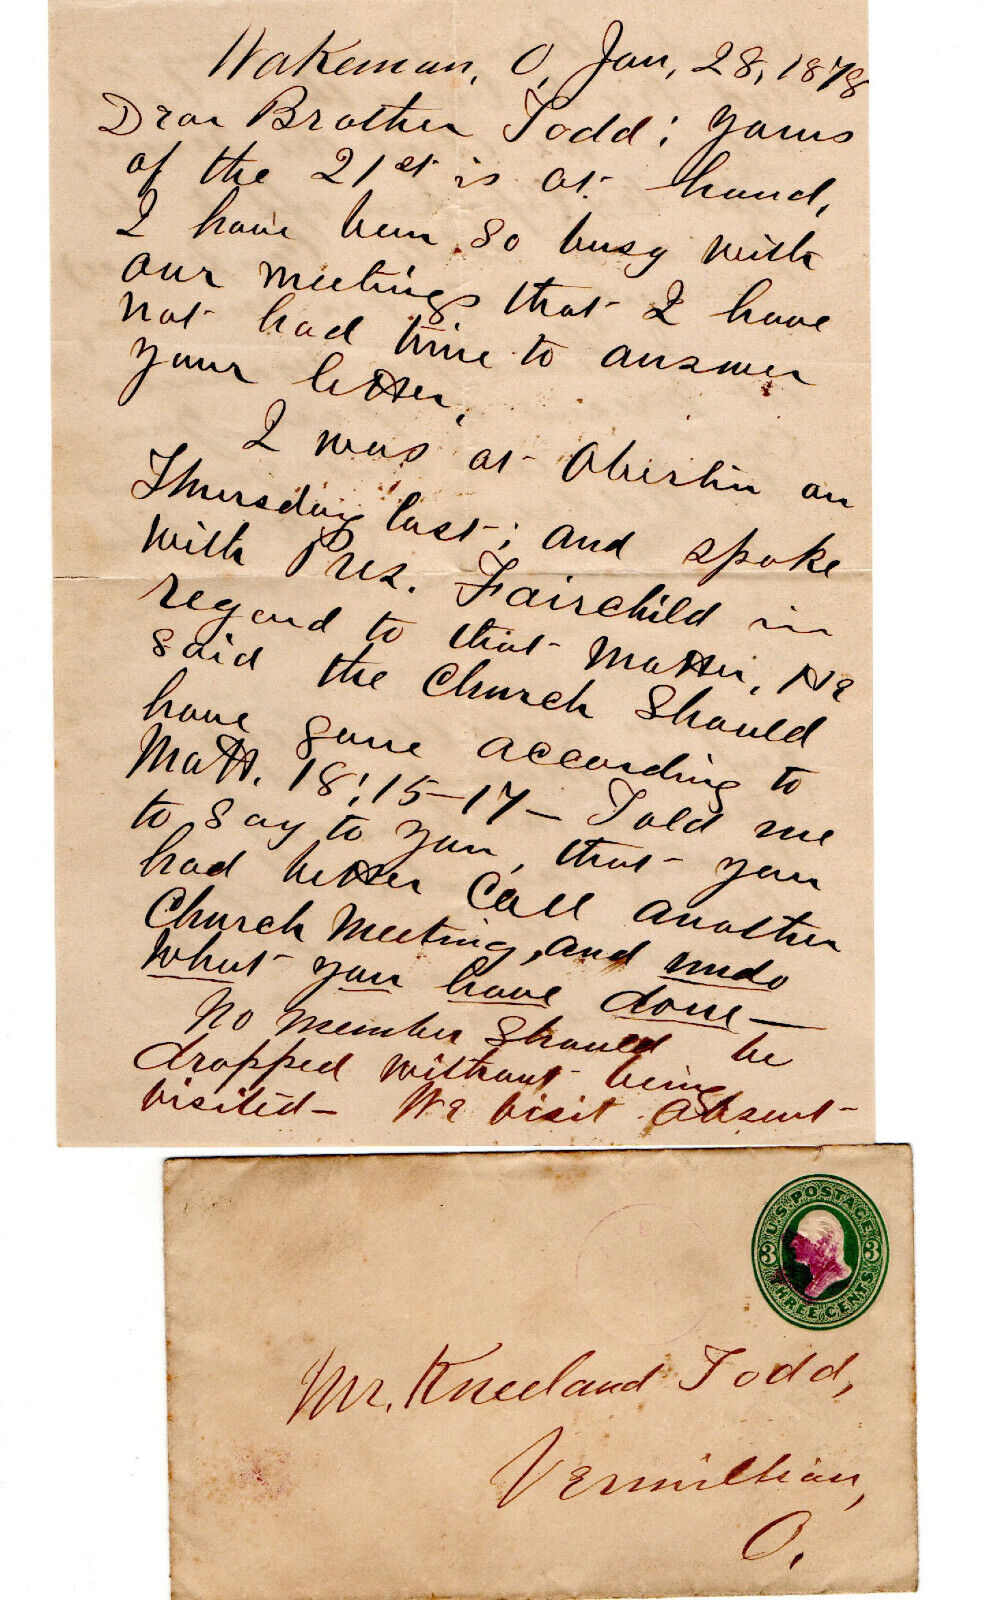 Wakeman, O, Jan, 28, 1878
Dear Brother Todd; yours
of the 21st is at hand,
I have been so busy with
our meetings that I have
not had time to answer
your letter,
I was at Oberlin on
Thursday last; and spoke
with Pres. Fairchild in
regard to that matter, He
said the Church Should
have gone according to
Matt. 18:15-17- Told me
to say to you, that you
had better Call another
Church Meeting, and undo
what you have done-
No member should be
dropped without being
visited- We visit absent-
U.S. POSTAGE
3 3
THREE CENTS
Mr, Kneeland Todd,
Vermillion,
O.